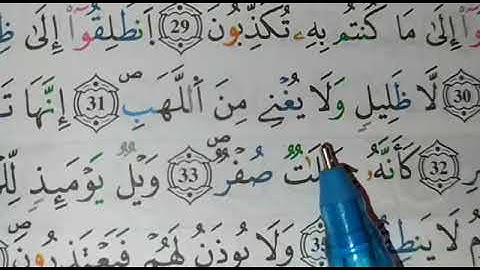 وٓا۟ إِلَىٰ مَا كُنتُم بِهِۦ تُكَذِّبُونَ 29 ٱنطَلِقُوٓا۟ إِلَىٰ
30 لَّا ظَلِيلٍ وَلَا يُغْنِى مِنَ ٱللَّهَبِ 31 إِنَّهَا
32 كَأَنَّهُۥ صُفْرٌ 33 وَيْلٌ يَوْمَئِذٍ
لَا وَلَا يُؤْذَنُ لَهُمْ فَيَعْتَذِرُونَ